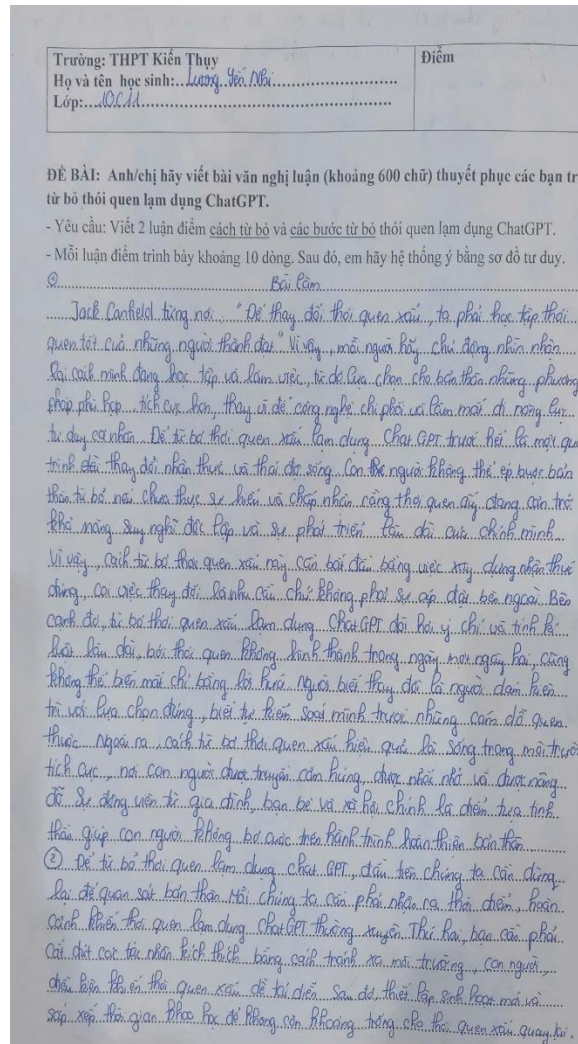 Trường: THPT Kiến Thụy
Điểm
Họ và tên học sinh: Lương Yến Nhi
Lớp: 10C11
ĐỀ BÀI: Anh/chị hãy viết bài văn nghị luận (khoảng 600 chữ) thuyết phục các bạn tr
từ bỏ thói quen lạm dụng ChatGPT.
- Yêu cầu: Viết 2 luận điểm cách từ bỏ và các bước từ bỏ thói quen lạm dụng ChatGPT.
- Mỗi luận điểm trình bày khoảng 10 dòng. Sau đó, em hãy hệ thống ý bằng sơ đồ tư duy.
① Bài làm
Jack Canfield từng nói, "Để thay đổi thói quen xấu, ta phải học tập thói
quen tốt của những người thành đạt" Vì vậy, mỗi người hãy chủ động nhìn nhận
lại cách mình đang học tập và làm việc, từ đó lựa chọn cho bản thân những phương
pháp phù hợp, tích cực hơn, thay vì để công nghệ chi phối và làm mai đi năng lực
tư duy cá nhân. Để từ bỏ thói quen xấu lạm dụng Chat GPT trước hết là một qu
trình thay đổi nhận thức và thái độ sống. Con người không thể ép buộc bản
thân từ bỏ nếu chưa thực sự hiểu và chấp nhận rằng thói quen ấy đang cản trở
khả năng suy nghĩ độc lập và sự phát triển lâu dài của chính mình
Vì vậy, cách từ bỏ thói quen xấu này cần bắt đầu bằng việc xây dựng nhận thức
đúng, coi việc thay đổi là nhu cầu chứ không phải sự áp đặt bên ngoài. Bên
cạnh đó, từ bỏ thói quen xấu lạm dụng ChatGPT đòi hỏi ý chí và tính kỉ
luật lâu dài, bởi thói quen không hình thành trong ngày một ngày hai, cũng
không thể biến mất chỉ bằng lời hứa. Người biết thay đổi là người dám kiên
trì với lựa chọn đúng, biết tự kiểm soát mình trước những cám dỗ quen
thuộc. Ngoài ra, cách từ bỏ thói quen xấu hiệu quả là sống trong môi trườ
tích cực, nơi con người được truyền cảm hứng, được nhắc nhở và được nâng
đỡ. Sự động viên từ gia đình, bạn bè và xã hội chính là điểm tựa tinh
thần giúp con người không bỏ cuộc trên hành trình hoàn thiện bản thân
② Để từ bỏ thói quen lạm dụng chat GPT, đầu tiên chúng ta cần dừng
lại để quan sát bản thân. Mỗi chúng ta cần phải nhận ra thời điểm, hoàn
cảnh khiến thói quen lạm dụng ChatGPT thường xuyên. Thứ hai, bạn cần phải
cắt đứt các tác nhân kích thích bằng cách tránh xa môi trường, con người,
điều kiện khiến thói quen xấu dễ tái diễn. Sau đó, thiết lập sinh hoạt mới và
sắp xếp thời gian khoa học để không còn khoảng trống cho thói quen xấu quay lại.